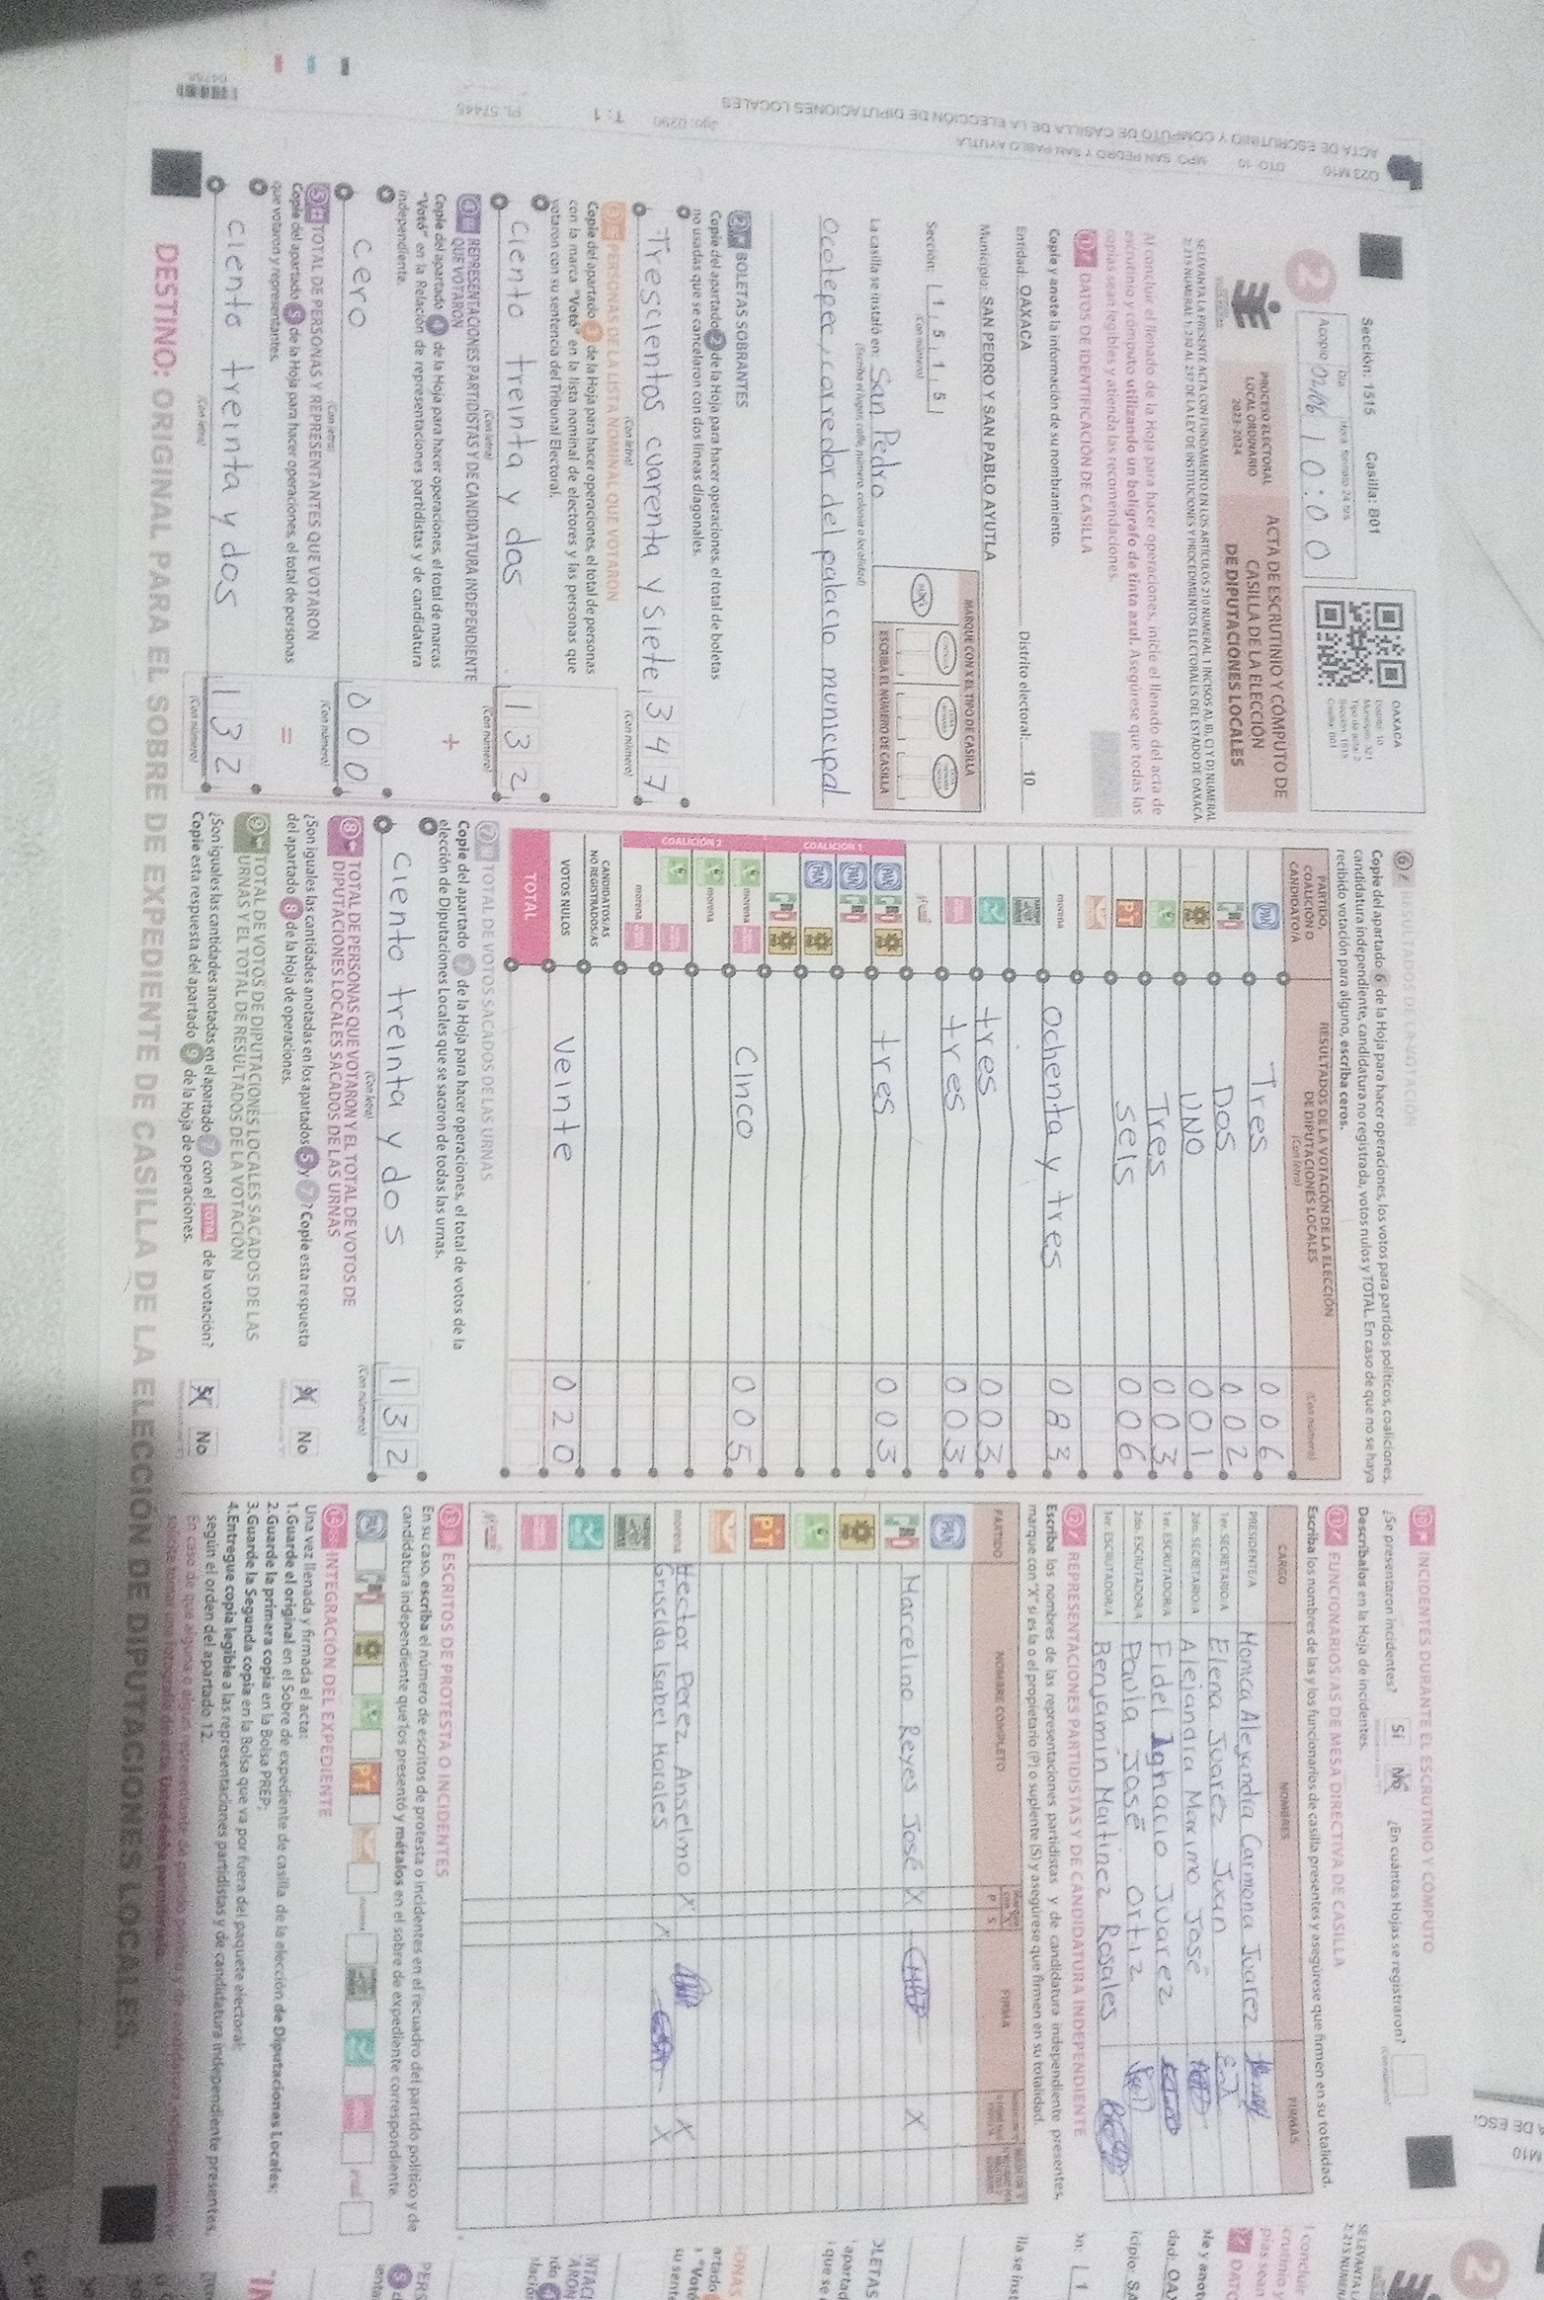 Sección: 1515 Casilla: B01
Acopio 10:00
OAXACA
2
PROCESO ELECTORAL
LOCAL ORDINARIO
2023-2024
ACTA DE ESCRUTINIO Y CÓMPUTO DE
CASILLA DE LA ELECCIÓN
DE DIPUTACIONES LOCALES
SE LEVANTA LA PRESENTE ACTA CON FUNDAMENTO EN LOS ARTÍCULOS 210 NUMERAL 1 INCISOS A), B), C) Y D) NUMERAL
2; 215 NUMERAL 1; 230 AL 237 DE LA LEY DE INSTITUCIONES Y PROCEDIMIENTOS ELECTORALES DEL ESTADO DE OAXACA.
Al concluir el llenado de la Hoja para hacer operaciones, inicie el llenado del acta de
escrutinio y cómputo utilizando un bolígrafo de tinta azul. Asegúrese que todas las
copias sean legibles y atienda las recomendaciones.
1 DATOS DE IDENTIFICACIÓN DE CASILLA
Copie y anote la información de su nombramiento.
Entidad: OAXACA Distrito electoral: 10
Municipio: SAN PEDRO Y SAN PABLO AYUTLA
Sección: 1 5 1 5
(Con número)
MARQUE CON X EL TIPO DE CASILLA
ESCRIBA EL NÚMERO DE CASILLA
La casilla se instaló en: San Pedro
(Escriba el lugar, calle, número, colonia o localidad)
Ocotepec, corredor del palacio municipal
2 BOLETAS SOBRANTES
Copie del apartado 2 de la Hoja para hacer operaciones, el total de boletas
no usadas que se cancelaron con dos líneas diagonales.
Trescientos cuarenta y siete 347
(Con letra) (Con número)
3 PERSONAS DE LA LISTA NOMINAL QUE VOTARON
Copie del apartado 3 de la Hoja para hacer operaciones, el total de personas
con la marca "Votó" en la lista nominal de electores y las personas que
votaron con su sentencia del Tribunal Electoral.
Ciento treinta y dos 132
(Con letra) (Con número)
4 REPRESENTACIONES PARTIDISTAS Y DE CANDIDATURA INDEPENDIENTE
QUE VOTARON
Copie del apartado 4 de la Hoja para hacer operaciones, el total de marcas
"Votó" en la Relación de representaciones partidistas y de candidatura
independiente.
+
Cero 000
(Con letra) (Con número)
5 TOTAL DE PERSONAS Y REPRESENTANTES QUE VOTARON
Copie del apartado 5 de la Hoja para hacer operaciones, el total de personas
que votaron y representantes.
=
Ciento treinta y dos 132
(Con letra) (Con número)
6 RESULTADOS DE LA VOTACIÓN
Copie del apartado 6 de la Hoja para hacer operaciones, los votos para partidos políticos, coaliciones,
candidatura independiente, candidatura no registrada, votos nulos y TOTAL. En caso de que no se haya
recibido votación para alguno, escriba ceros.
PARTIDO, COALICIÓN O CANDIDATO/A
RESULTADOS DE LA VOTACIÓN DE LA ELECCIÓN
DE DIPUTACIONES LOCALES
(Con letra) (Con número)
PAN Tres 006
PRI Dos 002
PRD UNO 001
Tres 003
PT seis 006
morena Ochenta y tres 083
tres 003
tres 003
COALICIÓN 1
PAN PRI PRD tres 003
PAN PRI
PAN PRD
PRI PRD
COALICIÓN 2
morena Cinco 005
morena
morena
CANDIDATOS/AS
NO REGISTRADOS/AS
VOTOS NULOS Veinte 020
TOTAL
7 TOTAL DE VOTOS SACADOS DE LAS URNAS
Copie del apartado 7 de la Hoja para hacer operaciones, el total de votos de la
elección de Diputaciones Locales que se sacaron de todas las urnas.
Ciento treinta y dos 132
(Con letra) (Con número)
8 TOTAL DE PERSONAS QUE VOTARON Y EL TOTAL DE VOTOS DE
DIPUTACIONES LOCALES SACADOS DE LAS URNAS
¿Son iguales las cantidades anotadas en los apartados 5 y 7? Copie esta respuesta
del apartado 8 de la Hoja de operaciones.
Sí No
9 TOTAL DE VOTOS DE DIPUTACIONES LOCALES SACADOS DE LAS
URNAS Y EL TOTAL DE RESULTADOS DE LA VOTACIÓN
¿Son iguales las cantidades anotadas en el apartado 7 con el TOTAL de la votación?
Copie esta respuesta del apartado 9 de la Hoja de operaciones.
Sí No
10 INCIDENTES DURANTE EL ESCRUTINIO Y CÓMPUTO
¿Se presentaron incidentes? Sí No ¿En cuántas Hojas se registraron?
Descríbalos en la Hoja de incidentes.
11 FUNCIONARIOS/AS DE MESA DIRECTIVA DE CASILLA
Escriba los nombres de las y los funcionarios de casilla presentes y asegúrese que firmen en su totalidad.
CARGO NOMBRES FIRMAS
PRESIDENTE/A Monica Alejandra Carmona Juarez
1er. SECRETARIO/A Elena Juarez Juan
2do. SECRETARIO/A Alejandra Maximo José
1er. ESCRUTADOR/A Fidel Ignacio Juarez
2do. ESCRUTADOR/A Paula José Ortiz
3er. ESCRUTADOR/A Benjamin Martinez Rosales
12 REPRESENTACIONES PARTIDISTAS Y DE CANDIDATURA INDEPENDIENTE
Escriba los nombres de las representaciones partidistas y de candidatura independiente presentes,
marque con "X" si es la o el propietario (P) o suplente (S) y asegúrese que firmen en su totalidad.
PARTIDO NOMBRE COMPLETO P S FIRMA
PAN
PRI Marcelino Reyes José X X
PRD
PT
morena Hector Perez Anselmo X X
Griselda Isabel Morales X X
13 ESCRITOS DE PROTESTA O INCIDENTES
En su caso, escriba el número de escritos de protesta o incidentes en el recuadro del partido político y de
candidatura independiente que los presentó y métalos en el sobre de expediente correspondiente.
14 INTEGRACIÓN DEL EXPEDIENTE
Una vez llenada y firmada el acta:
1.Guarde el original en el Sobre de expediente de casilla de la elección de Diputaciones Locales;
2.Guarde la primera copia en la Bolsa PREP;
3.Guarde la Segunda copia en la Bolsa que va por fuera del paquete electoral;
4.Entregue copia legible a las representaciones partidistas y de candidatura independiente presentes,
según el orden del apartado 12.
DESTINO: ORIGINAL PARA EL SOBRE DE EXPEDIENTE DE CASILLA DE LA ELECCIÓN DE DIPUTACIONES LOCALES.
023 M10 DTO: 10 MPO: SAN PEDRO Y SAN PABLO AYUTLA
ACTA DE ESCRUTINIO Y CÓMPUTO DE CASILLA DE LA ELECCIÓN DE DIPUTACIONES LOCALES
T: 1 PL 57445